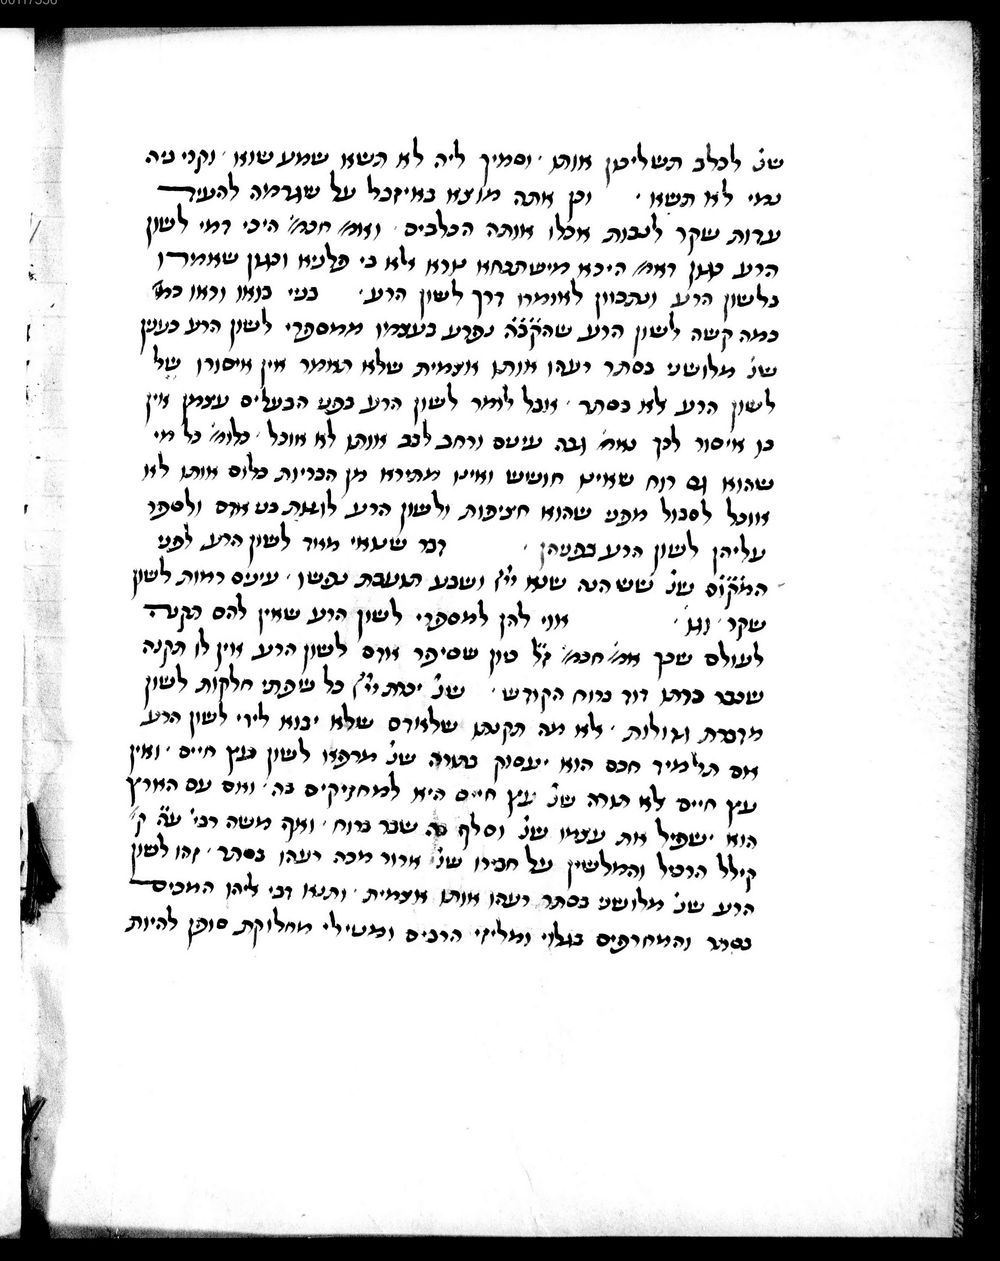 00117556
שנ' לכלב תשליכון אותו ׳ וסמיך ליה לא תשא שמע שוא ׳ וקרי ביה
נמי לא תשא ׳ וכן אתה מוצא באיזבל על שגרמה להעיד
עדות שקר לנבות אכלו אותה הכלבים ׳ ואמ' חכמ' היכי דמי לשון
הרע כגון דאמ' היכא מישתכחא נורא אלא בי פלניא וכגון שאמרו
בלשון הרע ונתכוון לאומרו דרך לשון הרע ׳ בני בואו וראו כמ'
כמה קשה לשון הרע שהקב"ה נפרע בעצמו ממספרי לשון הרע כענין
שנ' מלושני בסתר רעהו אותו אצמית שלא תאמר אין איסורו של
לשון הרע אלא בסתר ׳ אבל לומר לשון הרע בפני הבעלים עצמן אין
בו איסור לכך נאמ' גבה עינים ורחב לבב אותו לא אוכל ׳ כלומ' כל מי
שהוא גס רוח שאינו חושש ואינו מתירא מן הבריות כלום אותו לא
אוכל לסבול מפני שהוא חציפות ולשון הרע בני אדם ולספר
עליהן לשון הרע בפניהן ׳ דבר שנאוי מאד לשון הרע לפני
המקום שנ' שש הנה שנא י"י ושבע תועבת נפשו ׳ עינים רמות לשון
שקר ׳ וגו' ׳ אוי להן למספרי לשון הרע שאין להם תקנה
לעולם שכך אמ' חכמ' ז"ל כיון שסיפר אדם לשון הרע אין לו תקנה
שכבר כרתו דוד ברוח הקודש ׳ שנ' יכרת י"י כל שפתי חלקות לשון
מדברת גדולות ׳ אלא מה תקנתו שלאדם שלא יבוא לידי לשון הרע
אם תלמיד חכם הוא יעסוק בתורה שנ' מרפא לשון עץ חיים ׳ ואין
עץ חיים אלא תורה שנ' עץ חיים היא למחזיקים בה ׳ ואם עם הארץ
הוא ישפיל את עצמו שנ' וסלף בה שבר ברוח ׳ ואף משה רבי' ע"ה ק'
קילל הרכיל והמלשין על חבירו שנ' ארור מכה רעהו בסתר ׳ זהו לשון
הרע שנ' מלושני בסתר רעהו אותו אצמית ׳ ותנא דבי אליהו המכים
בסתר והמחרפים בגלוי ומליזי הרבים ומטילי מחלוקת סופן להיות